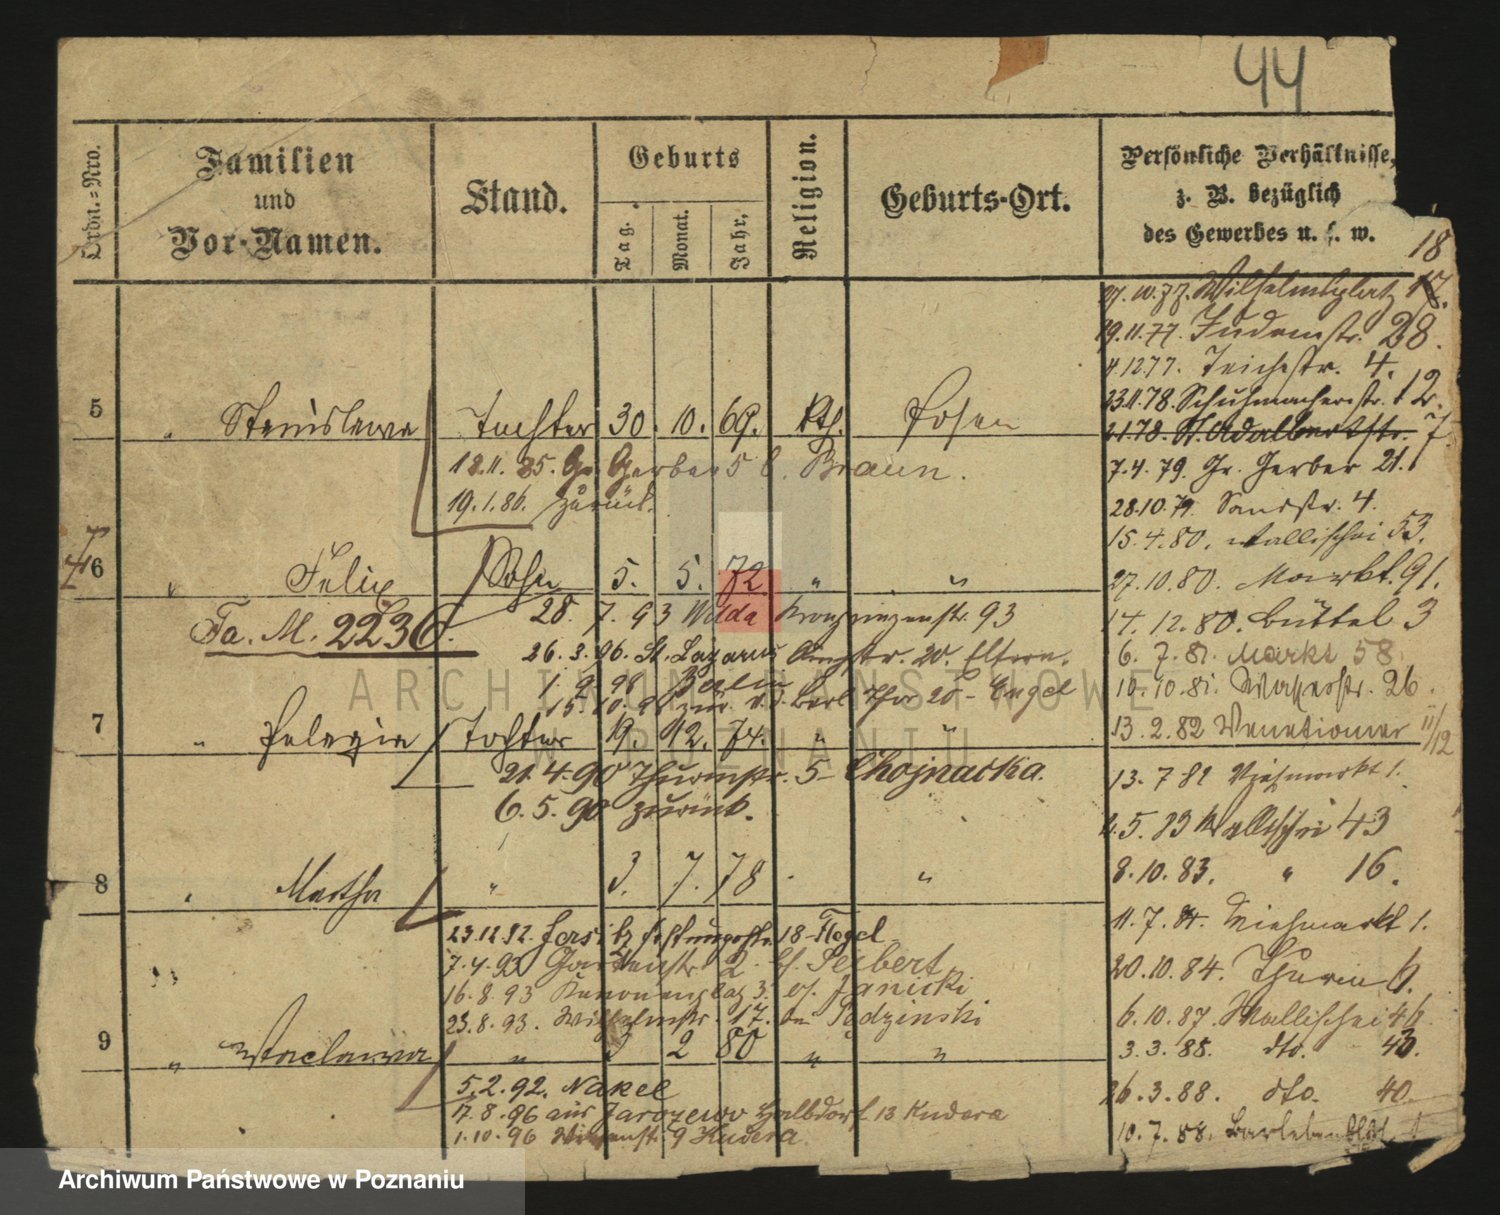 44
Ordn.-Nro.
Familien
und
Vor-Namen.
Stand.
Geburts
Tag.
Monat.
Jahr.
Religion.
Geburts-Ort.
Persönliche Verhältnisse,
z. B. bezüglich
des Gewerbes u. s. w.
18
27.10.77. Wilhelmsplatz 17.
19.11.77. Judenstr. 28.
4.12.77. Teichstr. 4.
23.11.78. Schuhmacherstr. 12.
5 " Stanislawa Tochter 30. 10. 69. Kth. Posen
2.1.78. St. Adalbertstr. 7.
18.11.85. Gr. Gerber 5 b. Braun.
7.4.79. Gr. Gerber 21.
19.1.86. zurück.
28.10.79. Sandstr. 4.
15.4.80. Wallischei 53.
6 " Felix Sohn 5. 5. 72 " "
27.10.80. Markt. 91.
Fa. M. 2236.
28. 7. 93 Wilda Kronprinzenstr. 93
14. 12. 80. Büttel 3
26. 3. 96. St. Lazarus 20. Eltern.
6. 7. 81. Markt 58
1. 9. 98 Berlin
10.10.81. Wasserstr. 26.
15. 10. 98 zur. v. Berl. Thor 20 - Engel
7 " Pelagia Tochter 19. 12. 74. " "
13. 2. 82 Venetianer 11/12
21. 4. 90 Thurmstr. 5 Chojnacka.
13. 7 82 Viehmarkt 1.
6. 5. 90 zurück.
5. 83 Wallischei 43
8 " Martha " 3. 7. 78 " "
8. 10. 83. " 16.
23.12.92. Jersitz 18 Flegel
11. 7. 84. Viehmarkt 1.
7. 4. 93 Gartenstr. 2 bf. Seibert
20. 10. 84. Thurm
16. 8. 93 Kanonenplatz 3. bf. Janicki
23. 8. 93. Wilhelmstr. 17.
6. 10. 87. Wallischei
9 " Waclawa " 3 2 80 " "
3. 3. 88. dto. 43.
5. 2. 92. Nakel
26. 3. 88. dto. 40.
17. 8. 96 aus Jarozewo Halbdorf 13 Kudera
1. 10. 96 9 Kudera.
10. 7. 88.
ARCHIWUM PAŃSTWOWE
W POZNANIU
Archiwum Państwowe w Poznaniu